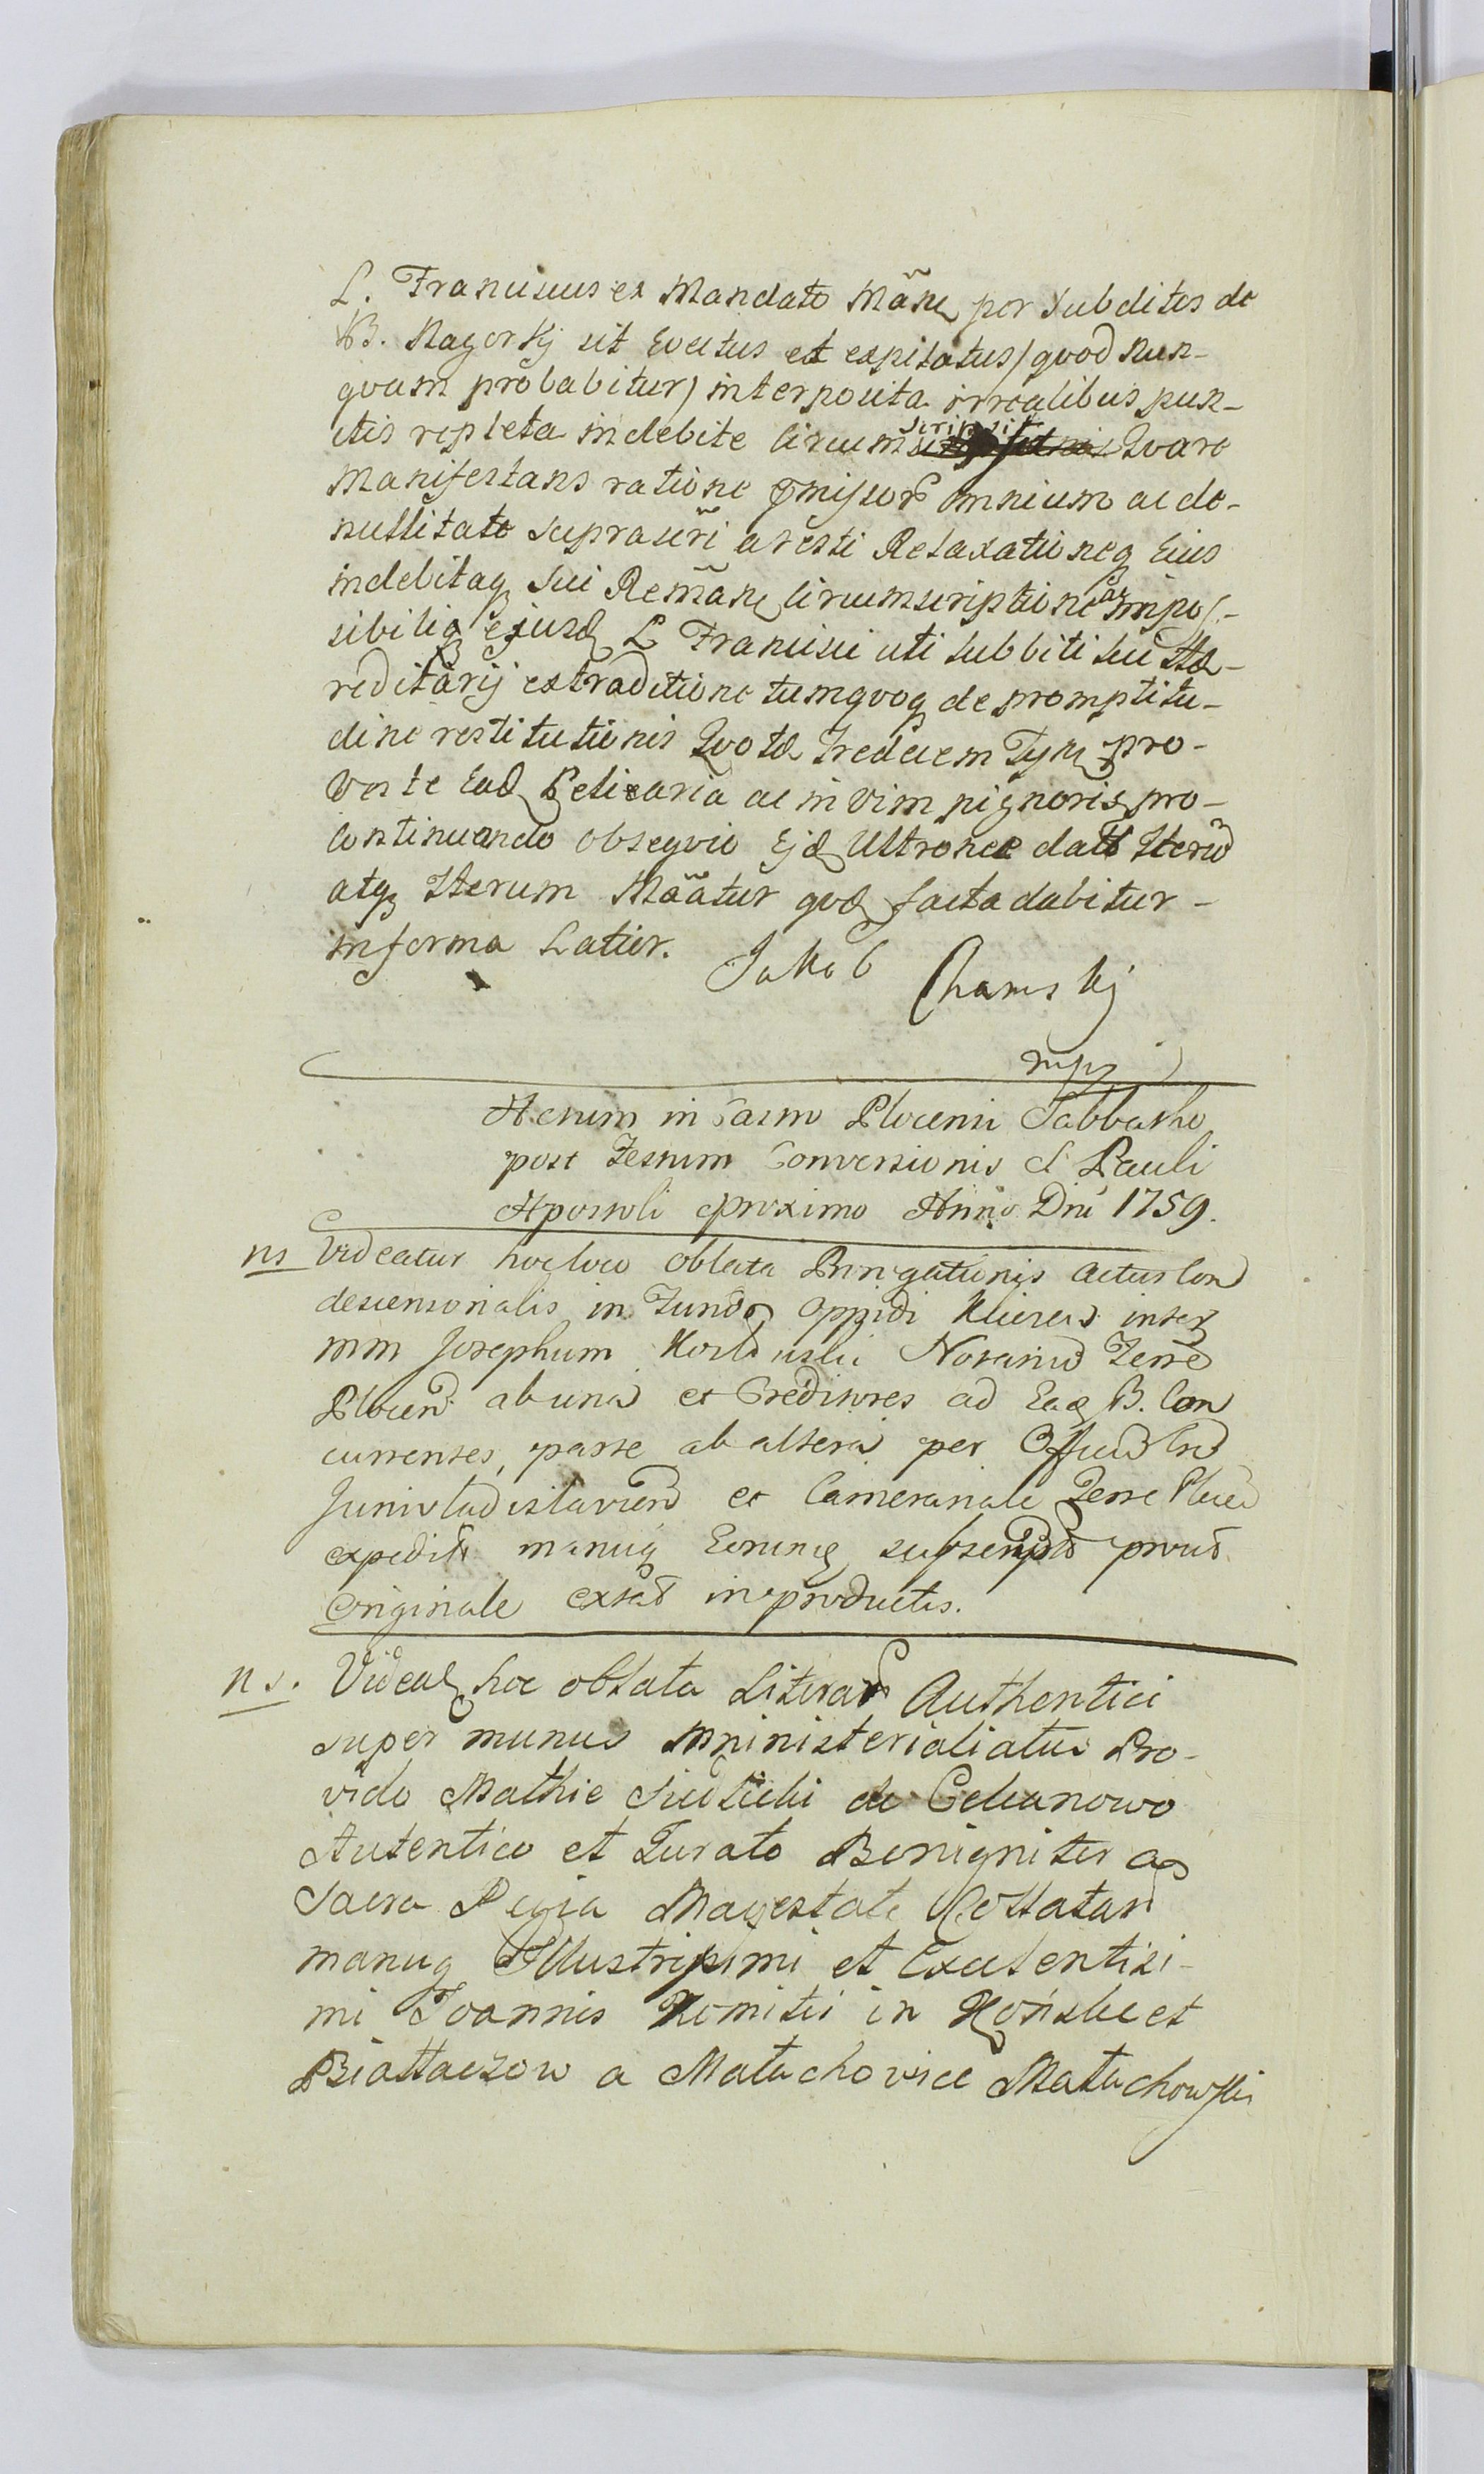 L. Franciscus ex Mandato Mãne per Subditos de
B. Nagorskj sit Evectus et expilatus) quod Nun-
quam probabitur) interposita irrealibus pun-
ctis repleta indebite Circum scripsit Quare
Manifestans ratione pmissor omnium ac de
nullitate suprascri aresti Relaxationeq Eius
indebitaq sui Remãne Circumscriptione ac impos-
sibiliq ejusd L Francisci uti subbiti sui Hæ-
reditarij extraditione tumquoq de promptitu-
dine restitutionis Quota Tredecem Tynf pro
Veste Ead Pelicaria ac in vim pignoris pro
Continuando obsequio Ejd Ultronee dat Iterũ
atq Iterum Mããtur qvd facta dabitur
in forma Latior.
Jakob Chamskj
mpp
Actum in Castro Plocensi Sabbatho
post Festum Conversionis S Pauli
Apostoli proximo Anno Dni 1759.
ns Videatur hoc loco Oblata Prorogationis actus Con
descensorialis in Fundo Oppidi Kuczbork inter
Mm Josephum Notariũ Terrẽ
Plocen ab una et Creditores ad Ead B. Con
currentes, parte ab altera per Officiũ Crd
Juniuladislavien et Camerariale Terre Plocen
expediti manuq Eorunq subscripto prout
Originale extat in productis.
ns. Videat hoc oblata Literar Authentici
super munus Mninisterialiatus Pro-
vido Mathie Siedlicki de Cekanowo
Autentico et Jurato Benigniter a
Sacra Regia Mayestate Collatar
manuq Illustrissimi et Excelentisi-
mi Joannis Komitis in Końskie et
Białłaczow a Małachovice Małachowski